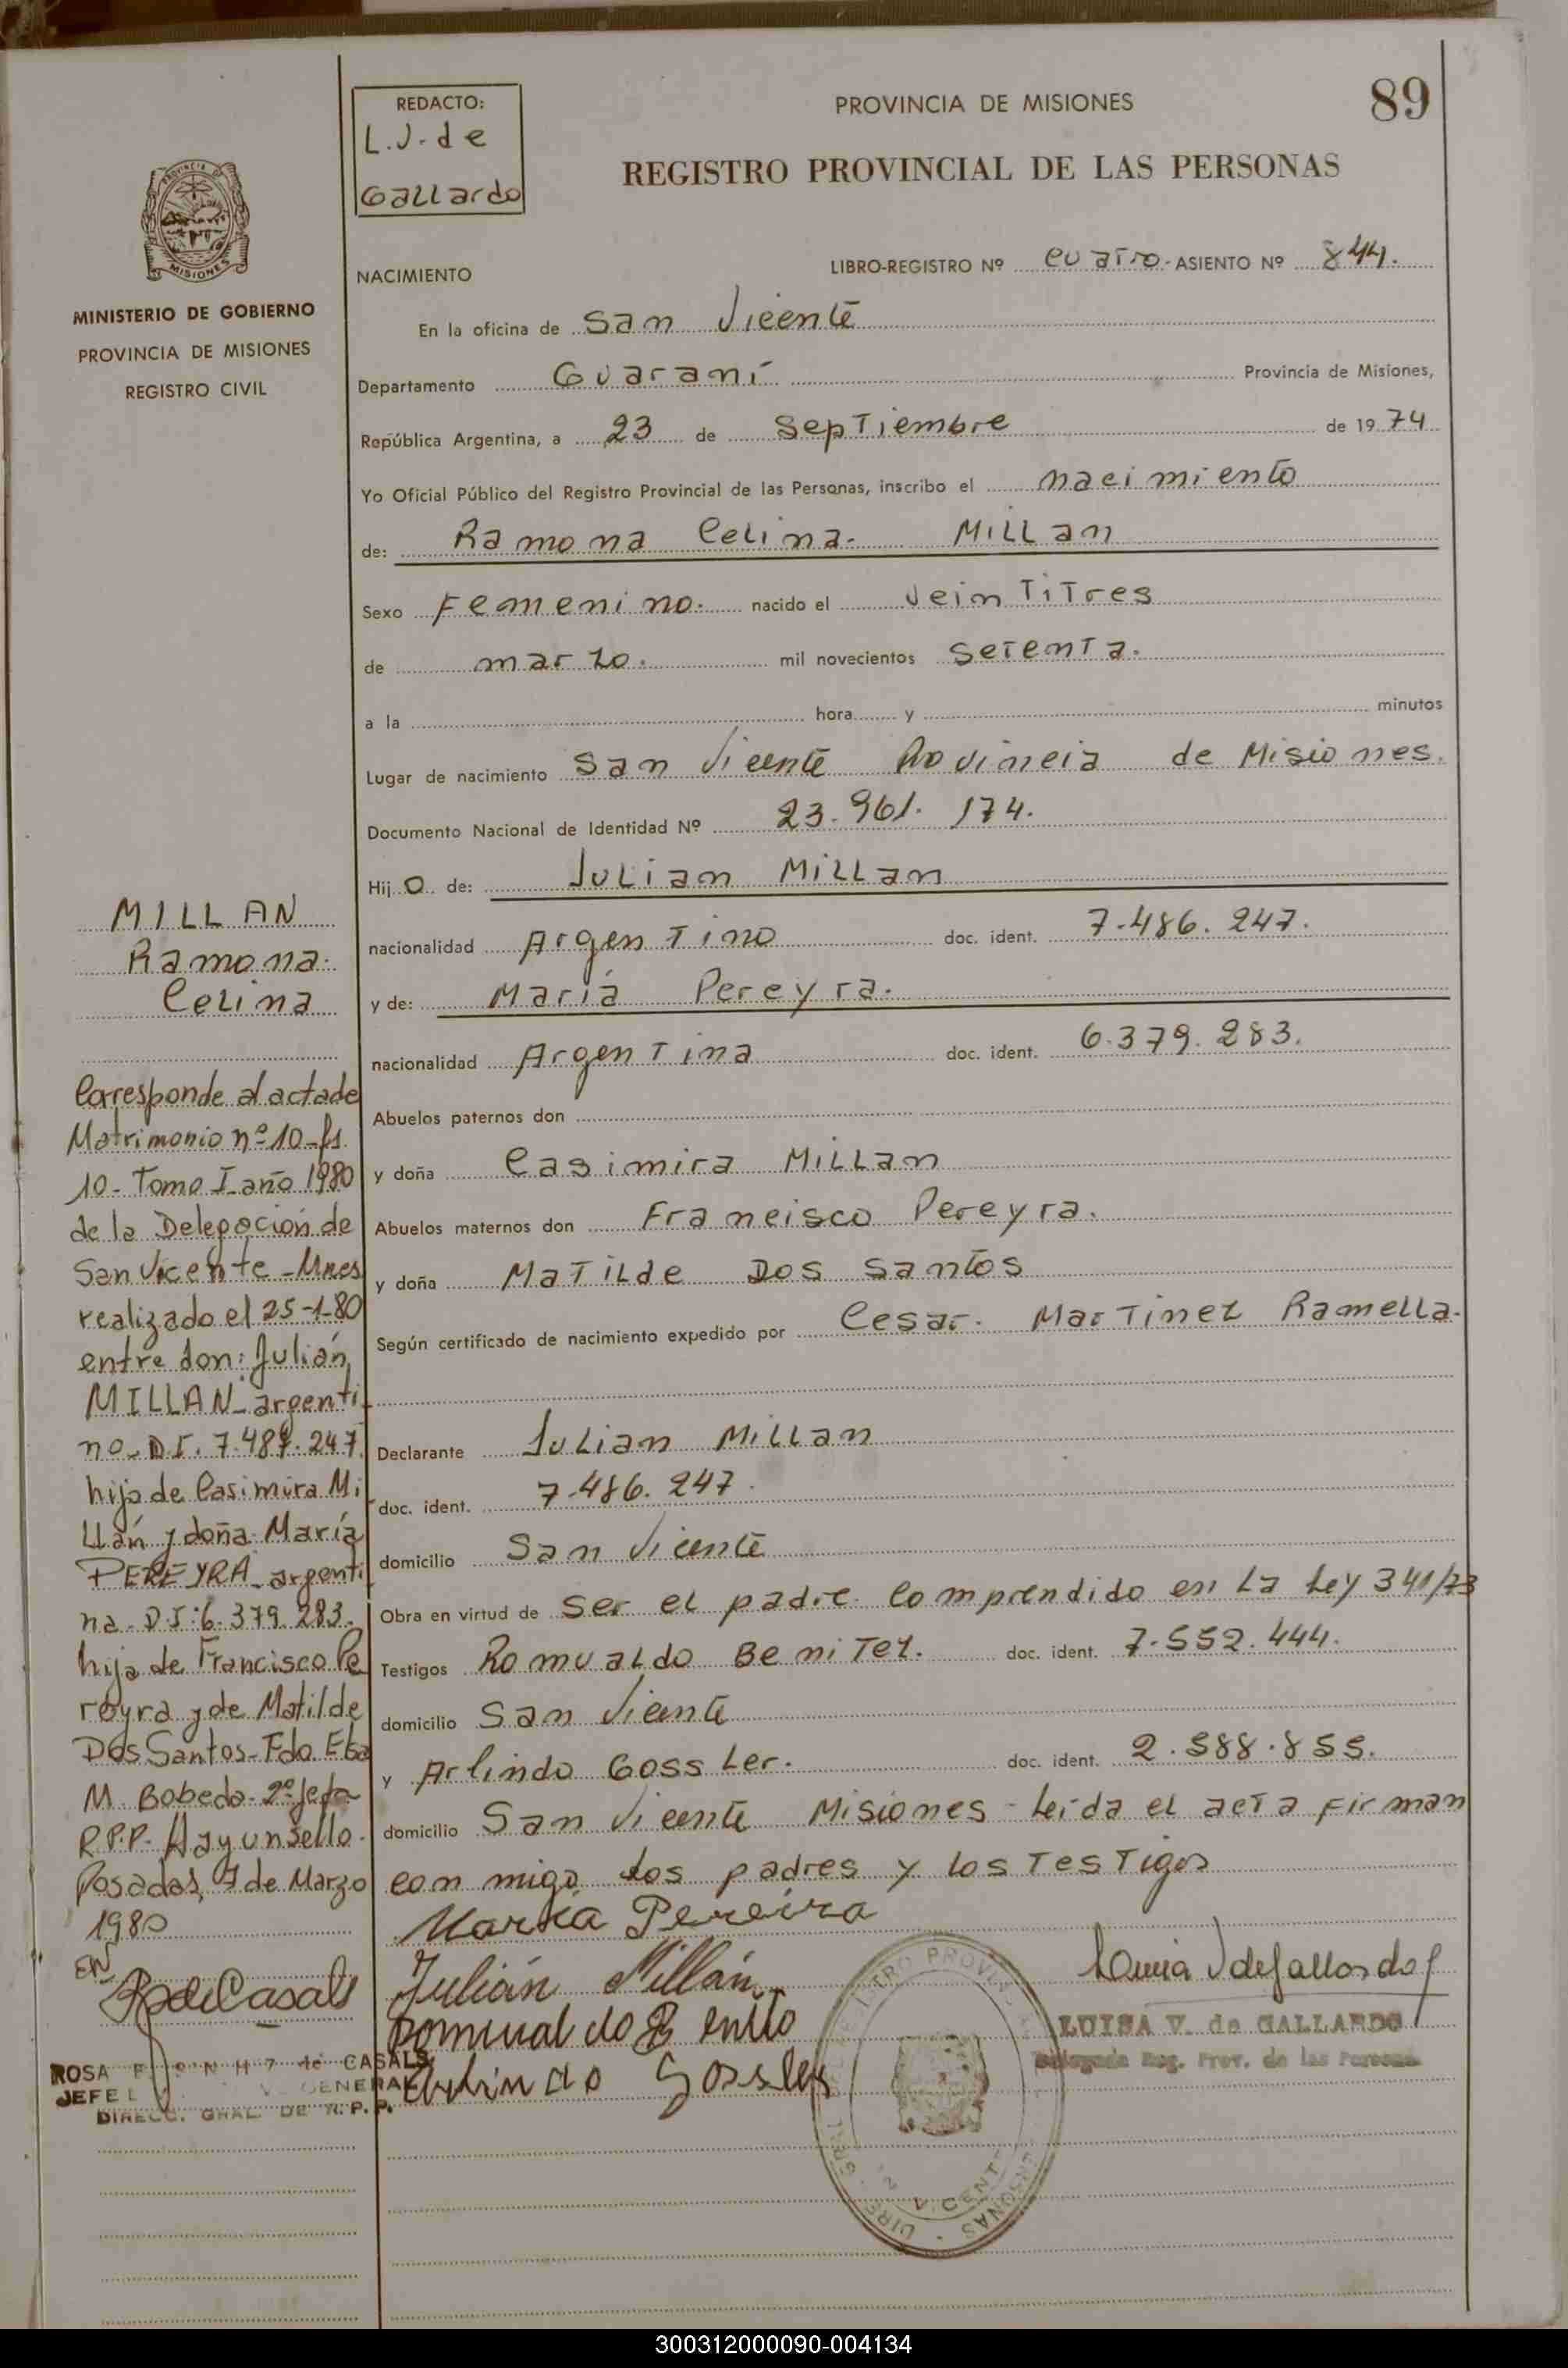 REDACTO:
L.J. de
Gallardo
PROVINCIA DE MISIONES
89
REGISTRO PROVINCIAL DE LAS PERSONAS
MISIONES
MINISTERIO DE GOBIERNO
PROVINCIA DE MISIONES
REGISTRO CIVIL
NACIMIENTO
LIBRO-REGISTRO Nº cuatro - ASIENTO Nº 844.
En la oficina de San Vicente
Departamento Guaraní Provincia de Misiones,
República Argentina, a 23 de Septiembre de 1974
Yo Oficial Público del Registro Provincial de las Personas, inscribo el nacimiento
de: Ramona Celina. Millan
Sexo Femenino. nacido el veintitres
de marzo. mil novecientos setenta.
a la hora y minutos
Lugar de nacimiento San Vicente Provincia de Misiones.
Documento Nacional de Identidad Nº 23.961.174.
Hijo de: Julian Millan
nacionalidad Argentino doc. ident. 7.486.247.
y de: María Pereyra.
nacionalidad Argentina doc. ident. 6.379.283.
Abuelos paternos don
y doña Casimira Millan
Abuelos maternos don Francisco Pereyra.
y doña Matilde Dos Santos
Según certificado de nacimiento expedido por Cesar. Martinez Ramella.
Declarante Julian Millan
doc. ident. 7.486.247.
domicilio San Vicente
Obra en virtud de ser el padre. Comprendido en la Ley 341/73
Testigos Romualdo Benitez. doc. ident. 7.552.444.
domicilio San Vicente
y Arlindo Gossler. doc. ident. 2.588.855.
domicilio San Vicente Misiones - Leída el acta firman
conmigo los padres y los testigos
María Pereira
Julián Millán
Arlindo Gossler
LUISA V. de GALLARDO
Delegada Reg. Prov. de las Personas
MILLAN
Ramona.
Celina
Corresponde al acta de
Matrimonio nº 10 - fs.
10 - Tomo I - año 1980
de la Delegación de
San Vicente - Mnes
realizado el 25-1-80
entre don: Julián
MILLAN - argenti
no - D.I. 7.487.247.
hijo de Casimira Mi
llán y doña: María
PEREYRA - argenti
na - D.I: 6.379.283.
hija de Francisco Pe
reyra y de Matilde
Dos Santos - Fdo. Elsa
M. Bobeda - 2º Jefa
R.P.P. Hay un sello.
Posadas, 7 de Marzo
1980
EN
R de Casals
ROSA de CASALS
JEFE GENERAL
DIRECC. GRAL. DE R.P.P.
VICENTE
300312000090-004134